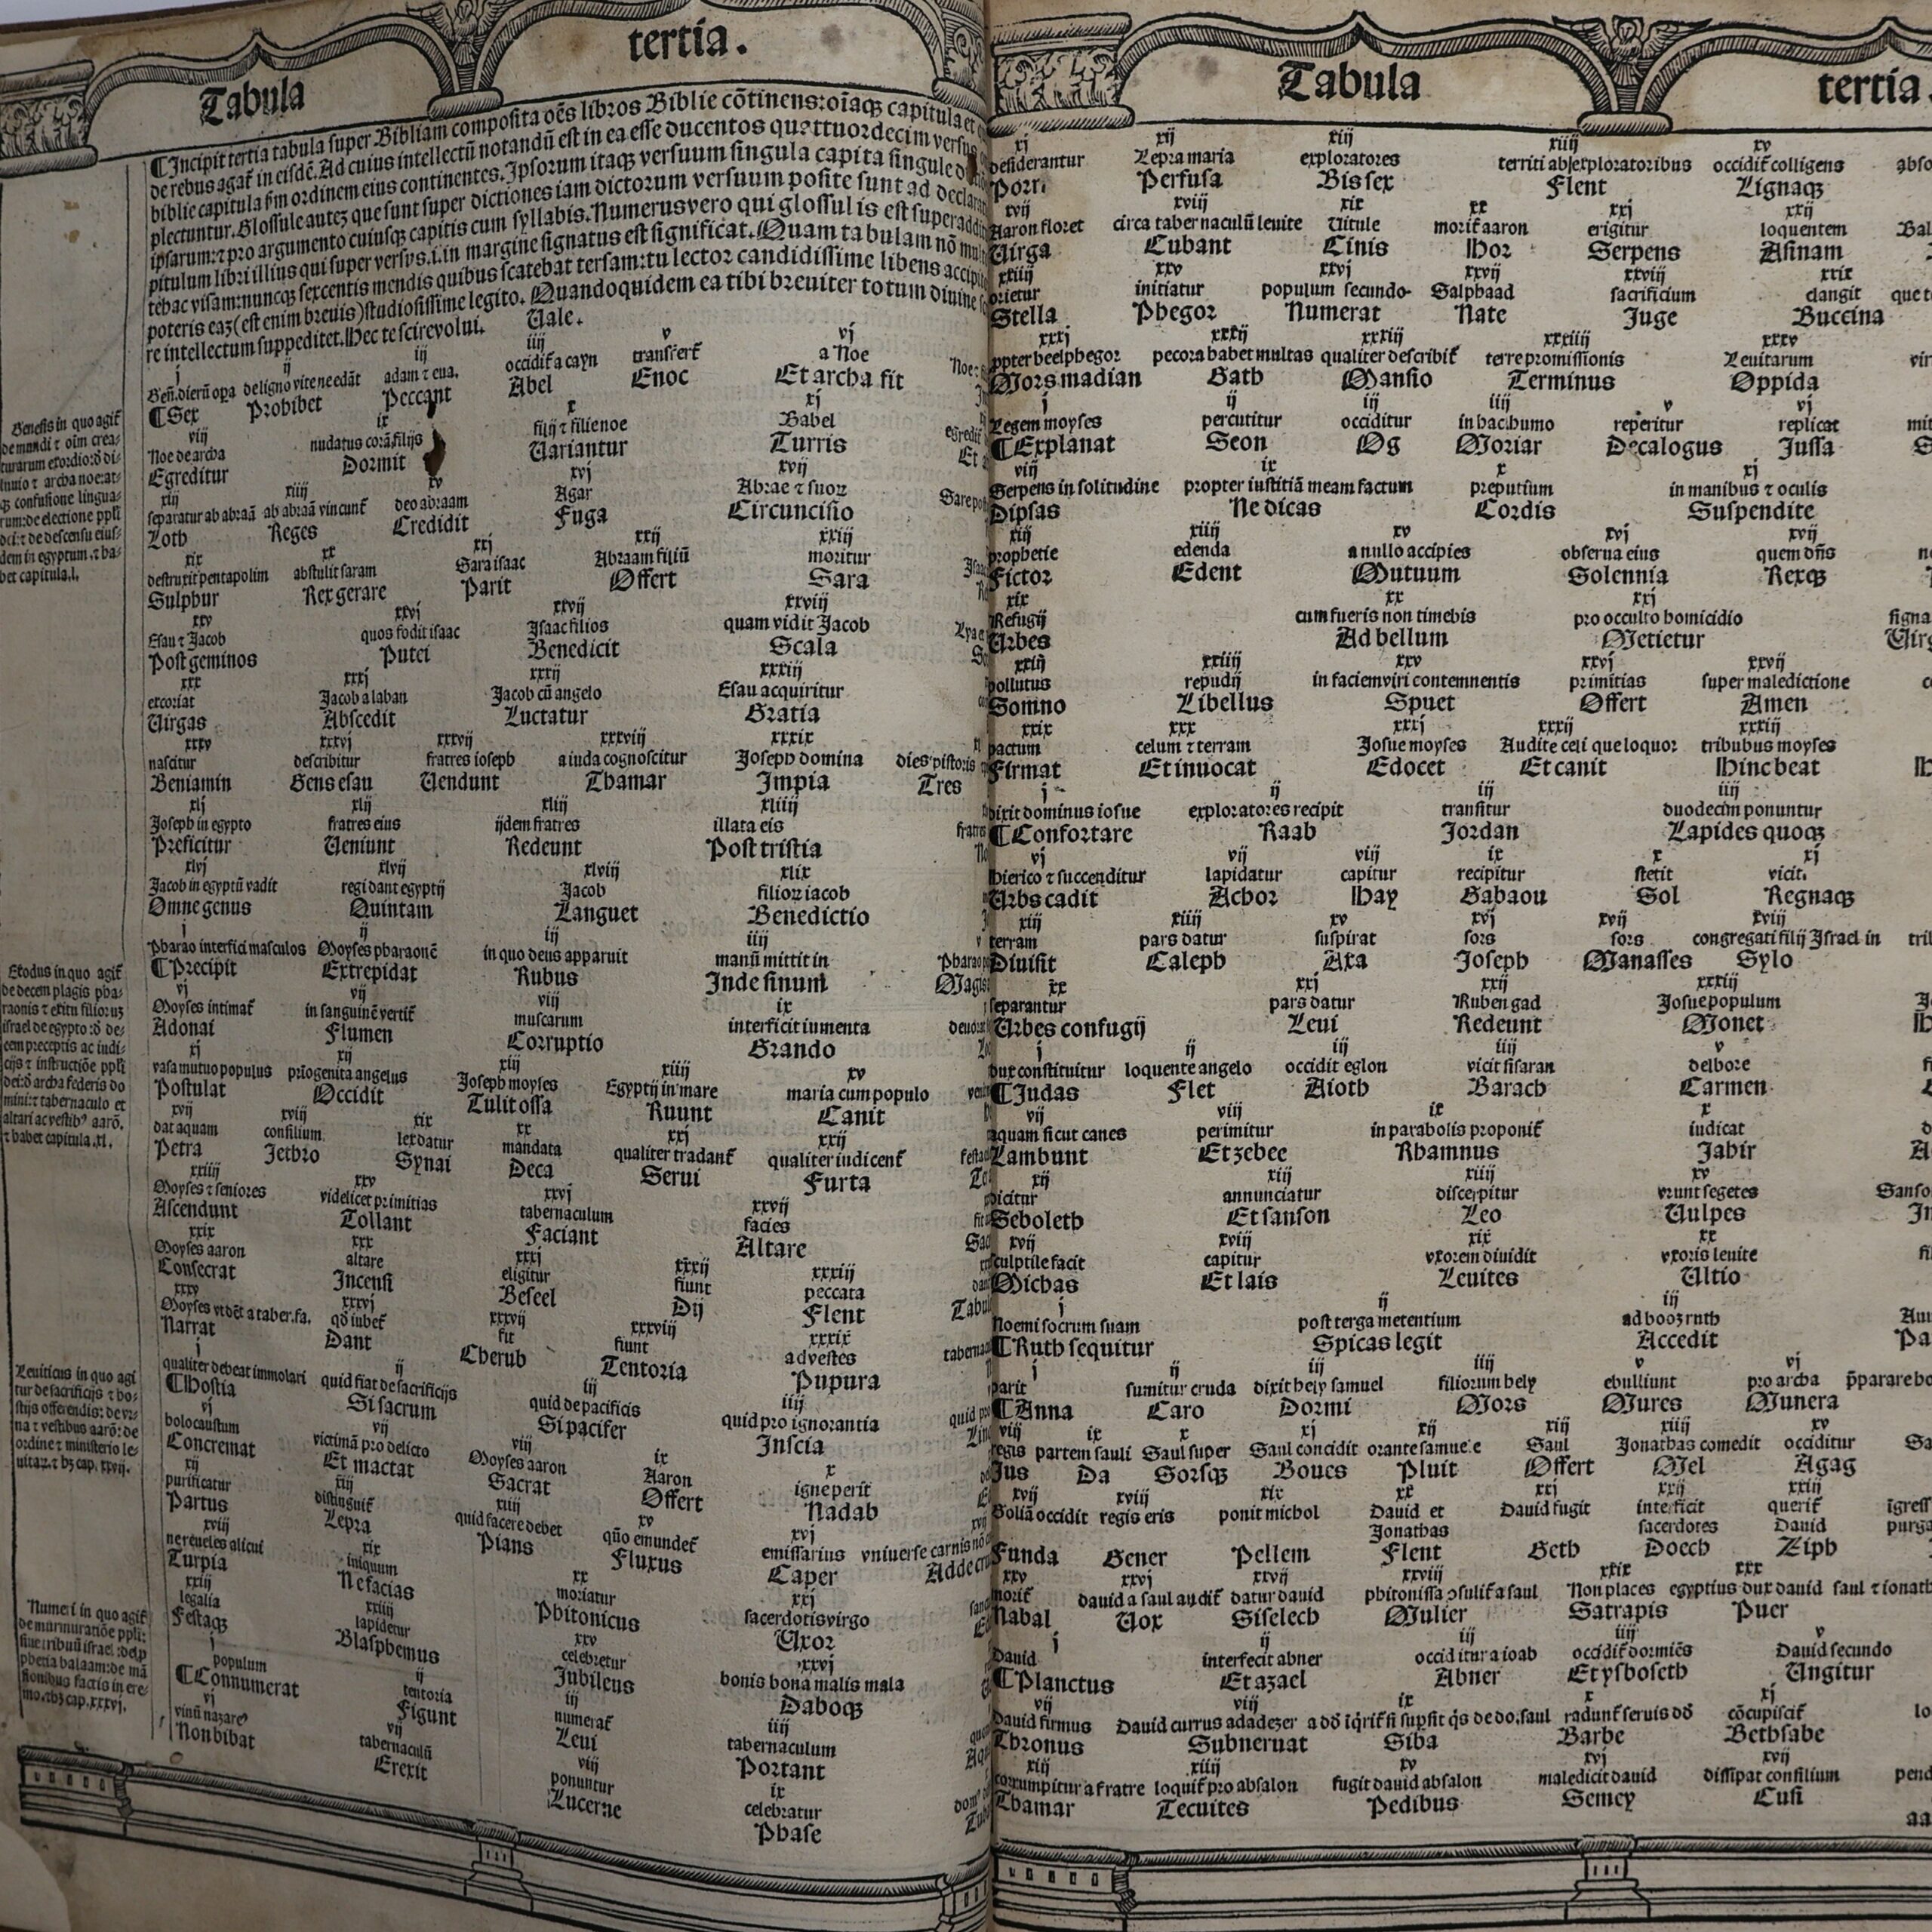 Tabula
tertia.
¶Incipit tertia tabula super Bibliam composita oēs libros Biblie cōtinens: oīaqꝫ capitula et
de rebus agat᷑ in eisdē. Ad cuius intellectū notandū est in ea esse ducentos quattuordecim versus
biblie capitula ẜm ordinem eius continentes. Ipsorum itaqꝫ versuum singula capita singule
plectuntur. Glossule auteꝫ que sunt super dictiones iam dictorum versuum posite sunt ad declara
ipsarum: ⁊ pro argumento cuiusqꝫ capitis cum syllabis. Numerus vero qui glossulis est superaddit
pitulum libri illius qui super versus .i. in margine signatus est significat. Quam tabulam nō mul
tēhac visam: nuncqꝫ sexcentis mendis quibus scatebat tersam: tu lector candidissime libens accipi
poteris eaꝫ (est enim breuis) studiosissime legito. Quandoquidem ea tibi breuiter totum diuine
re intellectum suppeditet. Hec te scire volui. Uale.
Genesis in quo agit᷑
de mundi ⁊ oīm crea-
turarum exordio: ō di-
luuio ⁊ archa noe: at-
qꝫ confusione lingua-
rum: de electione ppl̄i
dei: ⁊ de descensu eius-
dem in egyptum. ⁊ ha-
bet capitula .l.
j ij iij iiij v vj
Gen̄. dierū oꝑa de ligno vite ne edāt adam ⁊ eua. occidit᷑ a cayn transfert᷑ a Noe
¶Sex Prohibet Peccant Abel Enoc Et archa fit
viij ix x xj
Noe de archa nudatus corā filijs filij ⁊ filie noe Babel
Egreditur Dormit Uariantur Turris
xiij xiiij xv xvj xvij
separatur ab abraā ab abraā vincunt᷑ deo abraam Agar Abrae ⁊ suoꝝ
Loth Reges Credidit Fuga Circuncisio
xix xx xxj xxij xxiij
destruxit pentapolim abstulit saram Sara isaac Abraam filiū moritur
Sulphur Rex gerare Parit Offert Sara
xxv xxvj xxvij xxviij
Esau ⁊ Jacob quos fodit isaac Isaac filios quam vidit Jacob
Post geminos Putei Benedicit Scala
xxx xxxj xxxij xxxiij
excoriat Jacob a laban Jacob cū angelo Esau acquiritur
Uirgas Abscedit Luctatur Gratia
xxxv xxxvj xxxvij xxxviij xxxix
nascitur describitur fratres ioseph a iuda cognoscitur Joseph domina dies pistoris
Beniamin Gens esau Uendunt Thamar Impia Tres
xlj xlij xliij xliiij
Joseph in egypto fratres eius ijdem fratres illata eis
Preficitur Ueniunt Redeunt Post tristia
xlvj xlvij xlviij xlix
Jacob in egyptū vadit regi dant egyptij Jacob filioꝝ iacob
Omne genus Quintam Languet Benedictio
Exodus in quo agit᷑
de decem plagis pha-
raonis ⁊ exitu filioruꝫ
israel de egypto: ō de-
cem preceptis ac iudi-
cijs ⁊ instructiōe ppl̄i
dei: ō archa federis do
mini: ⁊ tabernaculo et
altari ac vestibꝰ aarō.
⁊ habet capitula .xl.
j ij iij iiij
Pharao interfici masculos Moyses pharaonē in quo deus apparuit manū mittit in
¶Precipit Extrepidat Rubus Inde sinum
vj vij viij ix
Moyses intimat᷑ in sanguinē vertit᷑ muscarum interficit iumenta
Adonai Flumen Corruptio Grando
xj xij xiij xiiij xv
vasa mutuo populus priogenita angelus Joseph moyses Egyptij in mare maria cum populo
Postulat Occidit Tulit ossa Ruunt Canit
xvij xviij xix xx xxj xxij
dat aquam consilium lex datur mandata qualiter tradant᷑ qualiter iudicent᷑
Petra Jethro Synai Deca Serui Furta
xxiiij xxv xxvj xxvij
Moyses ⁊ seniores videlicet primitias tabernaculum facies
Ascendunt Tollant Faciant Altare
xxix xxx xxxj xxxij xxxiij
Moyses aaron altare eligitur fiunt peccata
Consecrat Incensi Beseel Dij Flent
xxxv xxxvj xxxvij xxxviij xxxix
Moyses vt dēt a taber. fa. qō iubet᷑ fit fiunt ad vestes
Narrat Dant Cherub Tentoria Pupura
Leuiticus in quo agi
tur de sacrificijs ⁊ ho-
stijs offerendis: de vi-
na ⁊ vestibus aarō: de
ordine ⁊ ministerio le-
uitaꝝ. ⁊ hꝫ cap. xxvij.
j ij iij iiij
qualiter debeat immolari quid fiat de sacrificijs quid de pacificis quid pro ignorantia
¶Hostia Si sacrum Si pacifer Inscia
vj vij viij ix x
holocaustum victimā pro delicto Moyses aaron Aaron igne perit
Concremat Et mactat Sacrat Offert Nadab
xij xiij xiiij xv xvj
purificatur distinguit᷑ quid facere debet qūo emundet᷑ emissarius vniuerse carnis nō
Partus Lepra Pians Fluxus Caper Adde
xviij xix xx xxj
ne reueles alicui iniquum moriatur sacerdotis virgo
Turpia Nefacias Phitonicus Uxor
xxiij xxiiij xxv xxvj
legalia lapidetur celebretur bonis bona malis mala
Festaqꝫ Blasphemus Jubileus Daboqꝫ
Numeri in quo agit᷑
de murmuratiōe ppl̄i:
siue tribuū israel: de ꝓ
phetia balaam: de mā
sionibus factis in ere-
mo. ⁊ hꝫ cap. xxxvj.
j ij iij iiij
populum tentoria numerat᷑ tabernaculum
¶Connumerat Figunt Leui Portant
vj vij viij ix
vinū nazareꝰ tabernaculū ponuntur celebratur
Non bibat Erexit Lucerne Phase
Tabula
tertia.
xj xij xiij xiiij xv
desiderantur Lepra maria exploratores territi ab exploratoribus occidit᷑ colligens
Porri Perfusa Bis sex Flent Lignaqꝫ
xvij xviij xix xx xxj xxij
Aaron floret circa tabernaculū leuite Uitule morit᷑ aaron erigitur loquentem
Uirga Cubant Cinis Hor Serpens Asinam
xxiiij xxv xxvj xxvij xxviij xxix
orietur initiatur populum secundo- Salphaad sacrificium clangit
Stella Phegor Numerat Nate Juge Buccina
xxxj xxxij xxxiij xxxiiij xxxv
ꝓpter beelphegor pecora habet multas qualiter describit᷑ terre promissionis Leuitarum
Mors madian Gath Mansio Terminus Oppida
j ij iij iiij v vj
Legem moyses percutitur occiditur in hac humo reperitur replicat
¶Explanat Seon Og Moriar Decalogus Jussa
viij ix x xj
Serpens in solitudine propter iustitiā meam factum preputium in manibus ⁊ oculis
Dipsas Ne dicas Cordis Suspendite
xiij xiiij xv xvj xvij
prophetie edenda a nullo accipies obserua eius quem dn̄s
Fictor Edent Mutuum Solennia Rexqꝫ
xix xx xxj
Refugij cum fueris non timebis pro occulto homicidio
Urbes Ad bellum Metietur
xxiij xxiiij xxv xxvj xxvij
pollutus repudij in faciem viri contemnentis primitias super maledictione
Somno Libellus Spuet Offert Amen
xxix xxx xxxj xxxij xxxiij
pactum celum ⁊ terram Josue moyses Audite celi que loquor tribubus moyses
Firmat Et inuocat Edocet Et canit Hinc beat
j ij iij iiij
dixit dominus iosue exploratores recipit transitur duodecim ponuntur
¶Confortare Raab Jordan Lapides quoqꝫ
vj vij viij ix x xj
hierico ⁊ succenditur lapidatur capitur recipitur stetit vicit.
Urbs cadit Achor Hay Gabaou Sol Regnaqꝫ
xiij xiiij xv xvj xvij xviij
terram pars datur suspirat sors sors congregati filij Israel in
Diuisit Caleph Axa Joseph Manasses Sylo
xx xxj xxij xxiij
separantur pars datur Ruben gad Josue populum
Urbes confugij Leui Redeunt Monet
j ij iij iiij v
dux constituitur loquente angelo occidit eglon vicit sisaran delbore
¶Judas Flet Aioth Barach Carmen
vij viij ix x
aquam sicut canes perimitur in parabolis proponit᷑ iudicat
Lambunt Et zebee Rhamnus Jabir
xij xiij xiiij xv
dicitur annunciatur discerpitur vrunt segetes
Seboleth Et sanson Leo Uulpes
xvij xviij xix xx
sculptile facit capitur vxorem diuidit vxoris leuite
Michas Et lais Leuites Ultio
j ij iij
Noemi socrum suam post terga metentium ad booz ruth
¶Ruth sequitur Spicas legit Accedit
j ij iij iiij v vj
parit sumitur cruda dixit hely samuel filiorum hely ebulliunt pro archa
¶Anna Caro Dormi Mors Mures Munera
viij ix x xj xij xiij xiiij xv
regis partem sauli Saul super Saul concidit orante samuele Saul Jonathas comedit occiditur
Jus Da Sorsqꝫ Boues Pluit Offert Mel Agag
xvij xviij xix xx xxj xxij xxiij
Goliā occidit regis eris ponit michol Dauid et Dauid fugit interficit querit᷑
Jonathas sacerdotes Dauid
Funda Gener Pellem Flent Geth Doech Ziph
xxv xxvj xxvij xxviij xxix xxx
morit᷑ dauid a saul audit᷑ datur dauid phitonissa ↄsulit᷑ a saul Non places egyptius dux dauid
Nabal Uox Siselech Mulier Satrapis Puer
j ij iij iiij v
Dauid interfecit abner occiditur a ioab occidit᷑ dormiēs Dauid secundo
¶Planctus Et azael Abner Et ysboseth Ungitur
vij viij ix x xj
Dauid firmus Dauid currus adadezer radunt᷑ seruis dō cōcupiscit᷑
Thronus Subneruat Siba Barbe Bethsabe
xiij xiiij xv xvj xvij
corrumpitur a fratre loquit᷑ pro absalon fugit dauid absalon maledicit dauid dissipat consilium
Thamar Tecuites Pedibus Semey Cusi